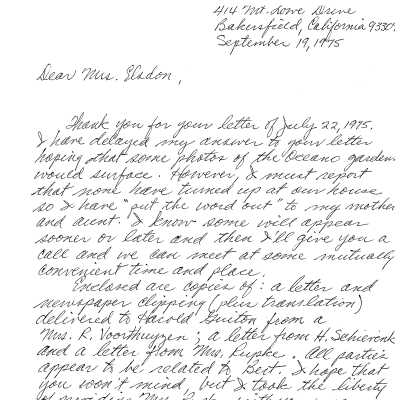 414 Mt. Lowe Drive
Bakersfield, California 9330
September 19, 1975
Dear Mrs. Elsdon,
Thank you for your letter of July 22, 1975.
I have delayed my answer to your letter
hoping that some photos of the Oceano gardens
would surface. However, I must report
that none have turned up at our house
so I have "put the word out" to my mother
and aunt. I know some will appear
sooner or later and then I'll give you a
call and we can meet at some mutually
convenient time and place.
Enclosed are copies of: a letter and
newspaper clipping (plus translation)
delivered to Harold Guiton from a
Mrs. R. Voorthuyzen; a letter from H. Schierenk
and a letter from Mrs. Rupke. All parties
appear to be related to Bert. I hope that
you won't mind, but I took the liberty
of